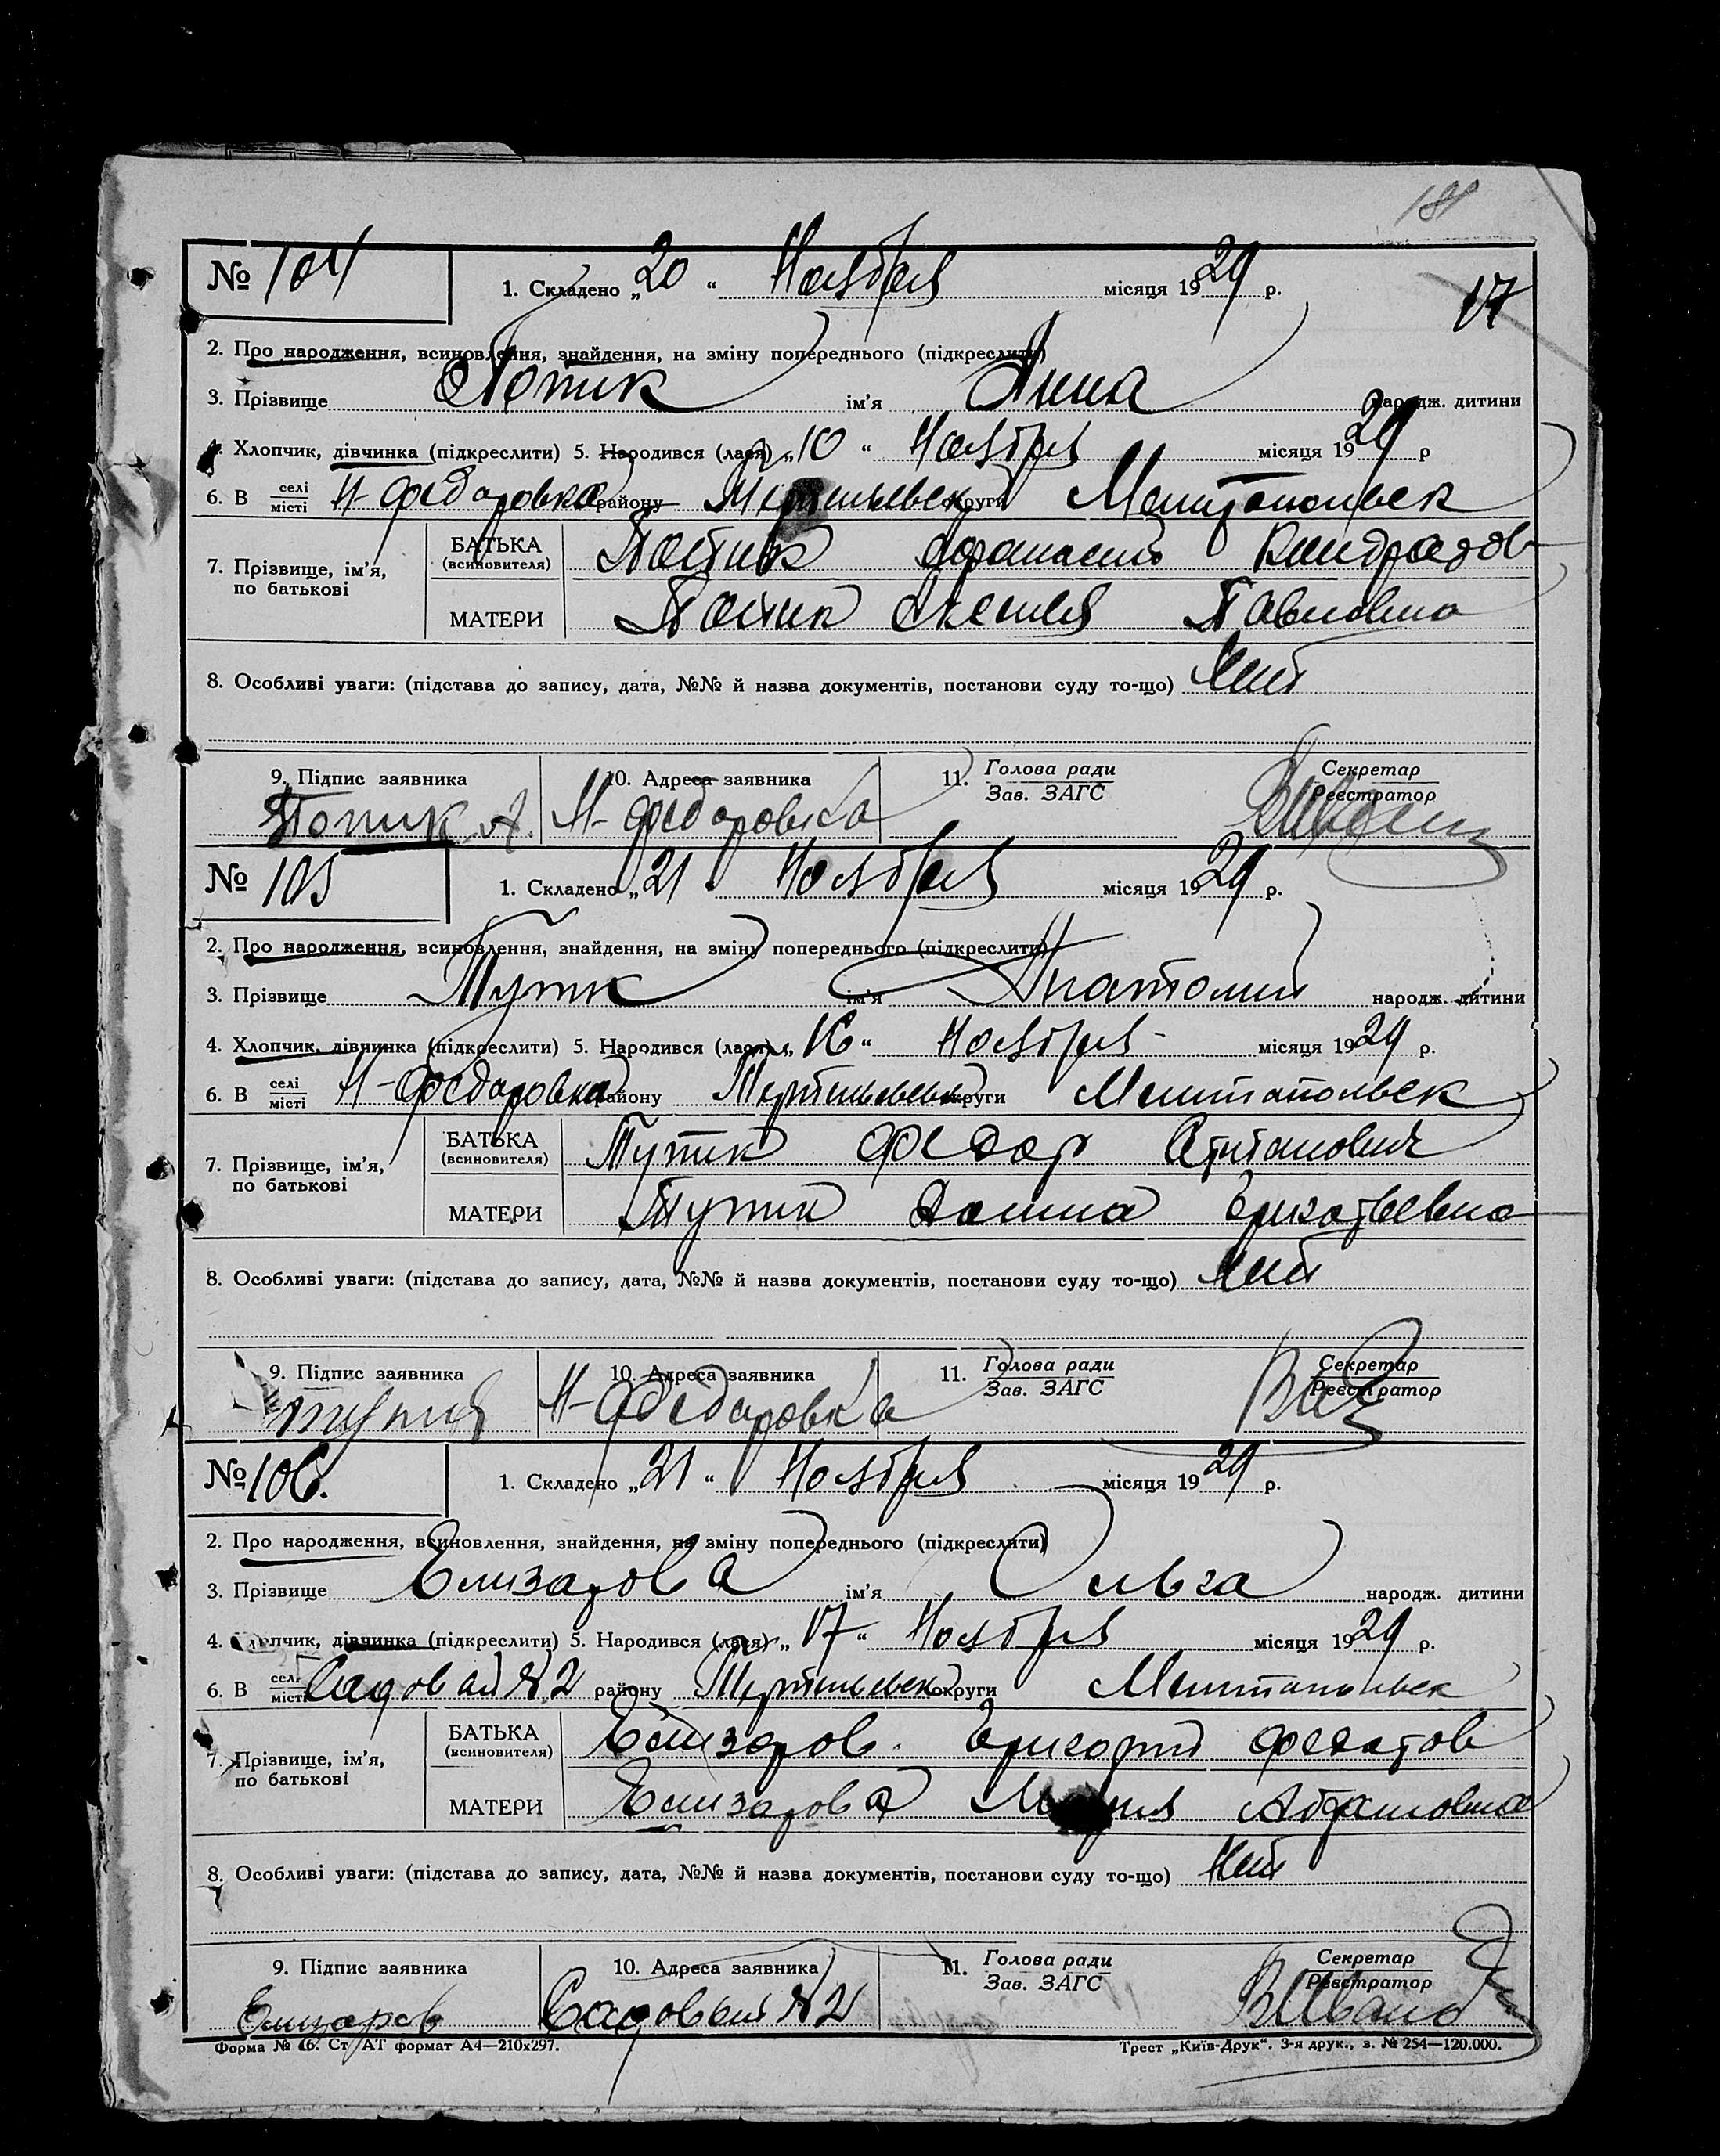 181
17
№ 104
1. Складено „20“ Ноября місяця 1929 р.
2. Про народження, всиновлення, знайдення, на зміну попереднього (підкреслити)
3. Прізвище Потик ім'я Анна народж. дитини
4. Хлопчик, дівчинка (підкреслити) 5. Народився (лася) „10“ Ноября місяця 1929 р
6. В селі місті Н-Федаровка району округи Мелитопольск
7. Прізвище, ім'я, по батькові
БАТЬКА (всиновителя) Потик Афанасий Кондратов
МАТЕРИ Потик Павловна
8. Особливі уваги: (підстава до запису, дата, №№ й назва документів, постанови суду то-що) Нет
9. Підпис заявника 10. Адреса заявника 11. Голова ради Зав. ЗАГС Секретар Реєстратор
Потик А. Н-Федаровка
№ 105
1. Складено „21“ Ноября місяця 1929 р.
2. Про народження, всиновлення, знайдення, на зміну попереднього (підкреслити)
3. Прізвище Тупик ім'я Анатолий народж. дитини
4. Хлопчик, дівчинка (підкреслити) 5. Народився (лася) „16“ Ноября місяця 1929 р.
6. В селі місті Н-Федаровка району округи Мелитопольск
7. Прізвище, ім'я, по батькові
БАТЬКА (всиновителя) Тупик Федор
МАТЕРИ Тупик
8. Особливі уваги: (підстава до запису, дата, №№ й назва документів, постанови суду то-що) Нет
9. Підпис заявника 10. Адреса заявника 11. Голова ради Зав. ЗАГС Секретар Реєстратор
Тупик Н-Федаровка
№ 106.
1. Складено „21“ Ноября місяця 1929 р.
2. Про народження, всиновлення, знайдення, на зміну попереднього (підкреслити)
3. Прізвище Елизарова ім'я Ольга народж. дитини
4. Хлопчик, дівчинка (підкреслити) 5. Народився (лася) „17“ Ноября місяця 1929 р.
6. В селі місті Садовый № 2 району округи Мелитопольск
7. Прізвище, ім'я, по батькові
БАТЬКА (всиновителя) Елизаров Григорий Федотов
МАТЕРИ Елизарова Мария Абрамовна
8. Особливі уваги: (підстава до запису, дата, №№ й назва документів, постанови суду то-що) Нет
9. Підпис заявника 10. Адреса заявника 11. Голова ради Зав. ЗАГС Секретар Реєстратор
Елизаров Садовый № 2
Форма № 16. Ст АТ формат А4—210х297. Трест „Київ-Друк“. 3-я друк., з. № 254—120.000.